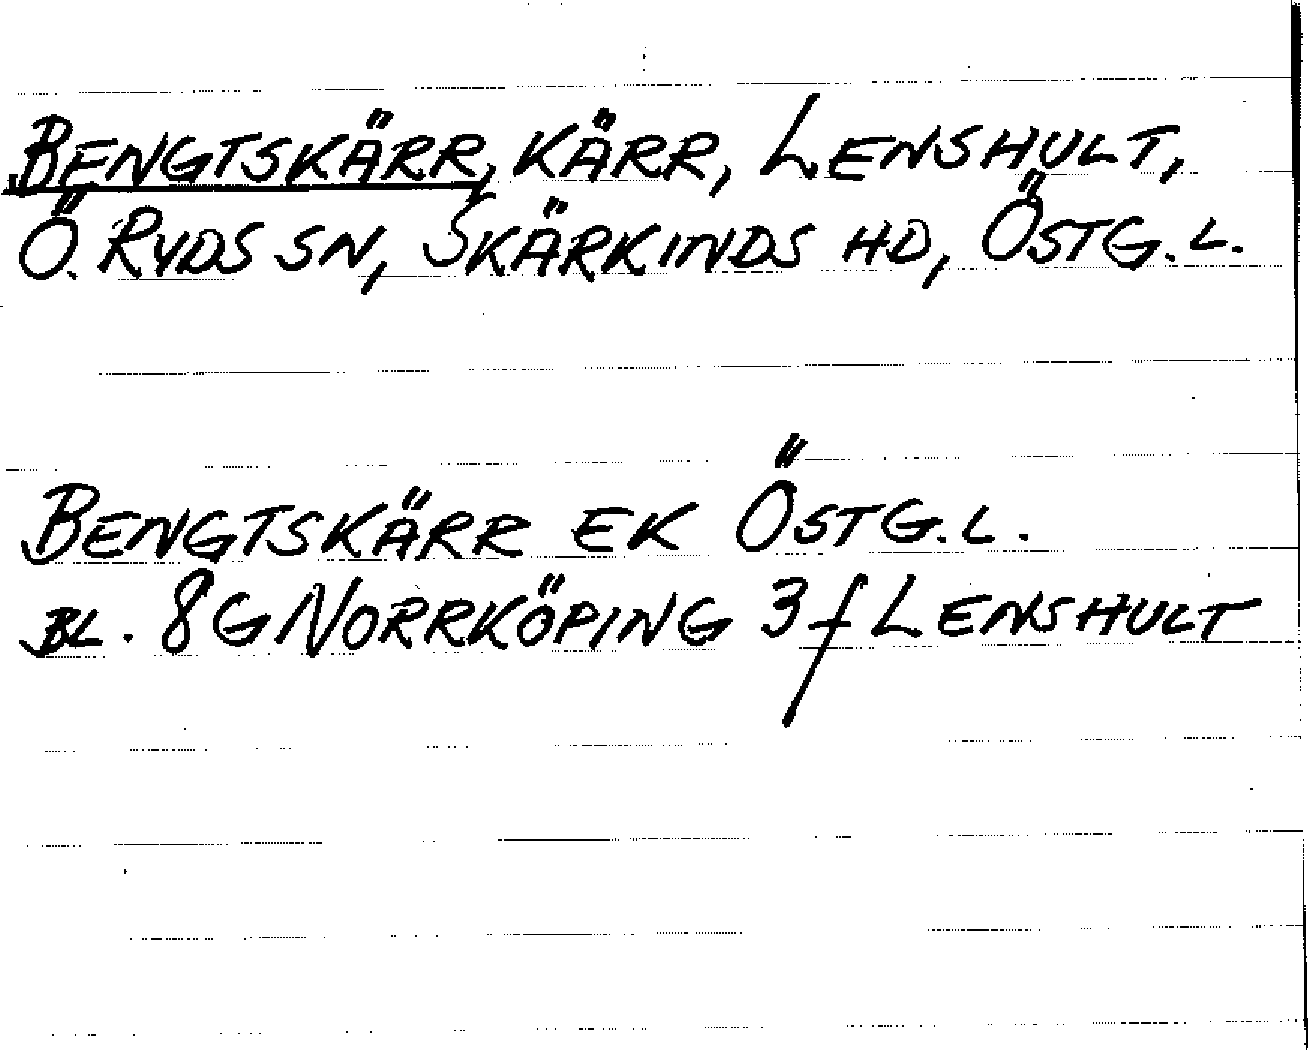 BENGTSKÄRR, KÄRR, LENSHULT,
Ö. RYDS SN, SKÄRKINDS HD, ÖSTG. L.
BENGTSKÄRR EK ÖSTG. L.
BL. 8G NORRKÖPING 3f LENSHULT